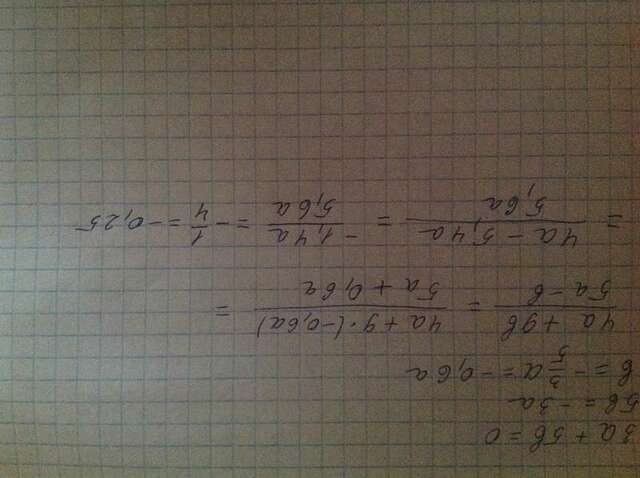 3a + 5в = 0
5в = -3a
в = -3/5 a = -0,6a
(4a + 9в)/(5a - в) = (4a + 9·(-0,6a))/(5a + 0,6a) =
= (4a - 5,4a)/(5,6a) = (-1,4a)/(5,6a) = -1/4 = -0,25